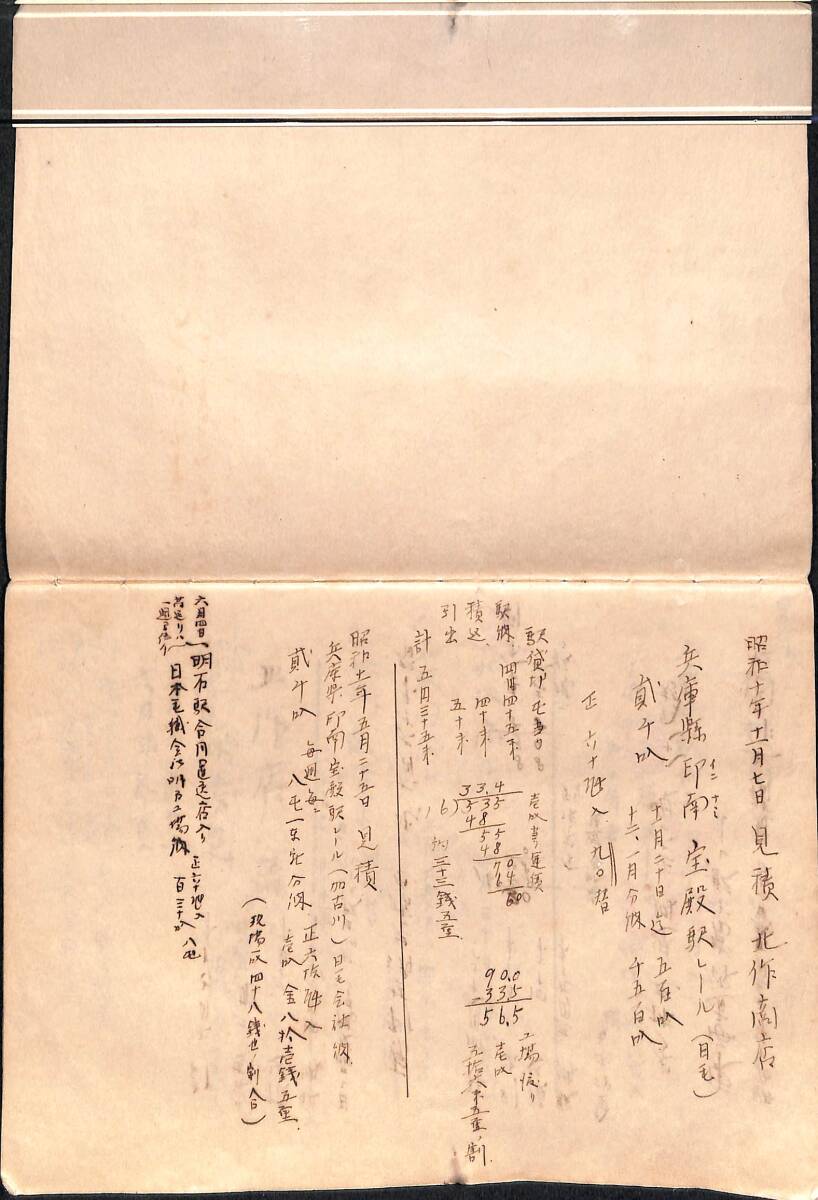 昭和十年十一月七日 見積 北作商店
兵庫縣 印南 宝殿駅レール(日毛)
貳千叺 十一月二十日迄 五百叺
十二、一月分納 千五百叺
正 六十瓩入 九〇替
駅貸切
駅納 四円四十五銭
積込 四十銭
引出 五十銭
計 五円三十五銭
33.4
16)535
48
55
48
70
64
60
約三十三銭五厘
90.0
-33.5
56.5
工場渡り
壱叺
五拾六銭五厘ノ割
昭和十一年五月二十五日 見積
兵庫県印南宝殿駅レール(加古川)日毛会社納
貳千叺 毎週毎ニ 正六拾瓩入
八屯一車宛分納 壱叺 金八拾壱銭五厘
(現場叺四十八銭也ノ割合)
六月四日
明石駅合同運送店入リ 正六十瓩入
日本毛織会社明石工場納 百三十叺 八屯